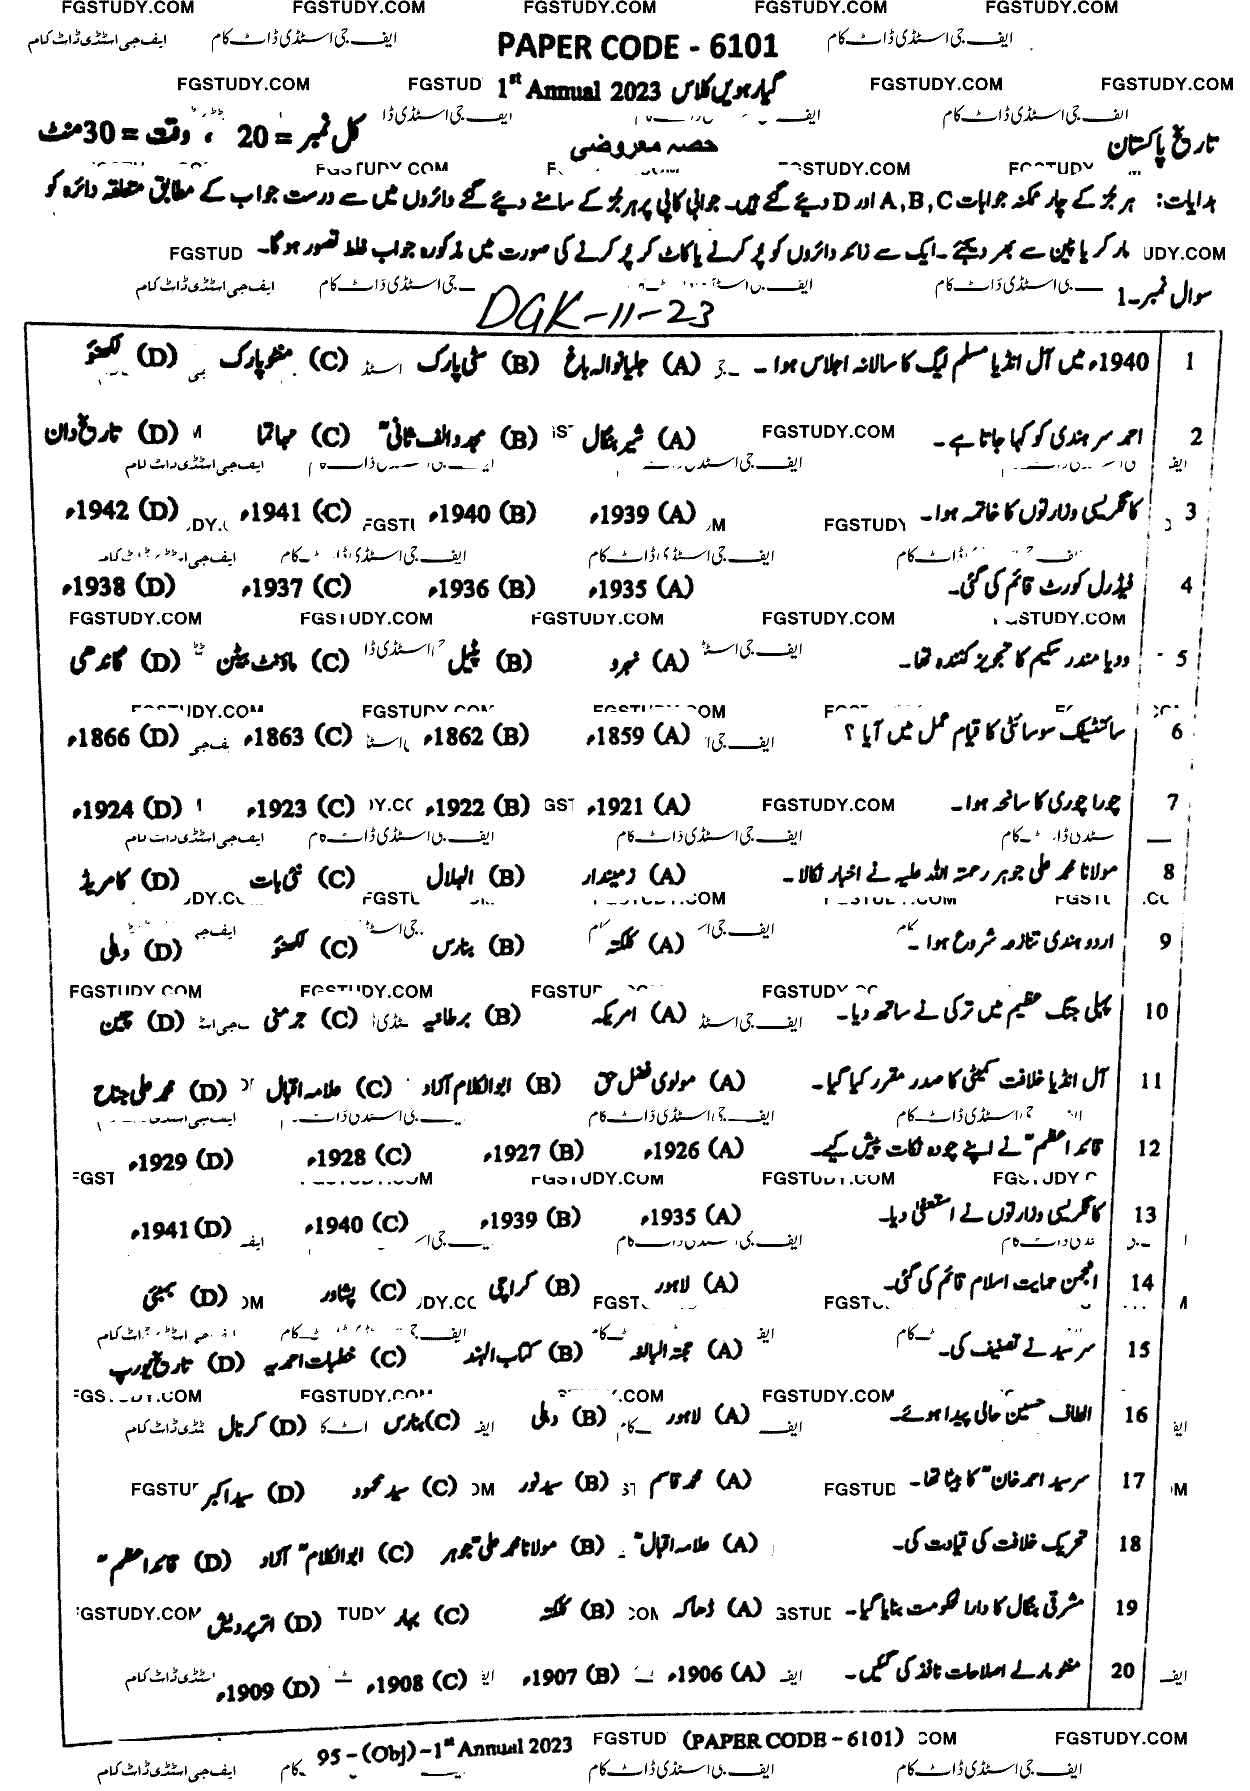 FGSTUDY.COM FGSTUDY.COM FGSTUDY.COM FGSTUDY.COM FGSTUDY.COM
ایف جی اسٹڈی ڈاٹ کام ایف جی اسٹڈی ڈاٹ کام PAPER CODE - 6101 ایف جی اسٹڈی ڈاٹ کام
FGSTUDY.COM FGSTUD 1st Annual 2023 گیارہویں کلاس FGSTUDY.COM FGSTUDY.COM
تاریخ پاکستان حصہ معروضی کل نمبر = 20 ، وقت = 30 منٹ
ہدایات: ہر جز کے چار ممکنہ جوابات A, B, C اور D دیے گئے ہیں۔ جوابی کاپی پر ہر جز کے سامنے دیے گئے دائروں میں سے درست جواب کے مطابق متعلقہ دائرہ کو
مارکر یا پین سے بھر دیجئے۔ ایک سے زائد دائروں کو پُر کرنے یا کاٹ کر پُر کرنے کی صورت میں مذکورہ جواب غلط تصور ہوگا۔
سوال نمبر-1
DGK-11-23
1 1940ء میں آل انڈیا مسلم لیگ کا سالانہ اجلاس ہوا۔ (A) جلیانوالہ باغ (B) سٹی پارک (C) منٹو پارک (D) لکھنؤ
2 احمد سرہندی کو کہا جاتا ہے۔ (A) شیر بنگال (B) مجدد الف ثانیؒ (C) مہاتما (D) تاریخ دان
3 کانگریسی وزارتوں کا خاتمہ ہوا۔ (A) 1939ء (B) 1940ء (C) 1941ء (D) 1942ء
4 فیڈرل کورٹ قائم کی گئی۔ (A) 1935ء (B) 1936ء (C) 1937ء (D) 1938ء
5 ودیا مندر سکیم کا تجویز کنندہ تھا۔ (A) نہرو (B) پٹیل (C) ماؤنٹ بیٹن (D) گاندھی
6 سائنٹیفک سوسائٹی کا قیام عمل میں آیا ؟ (A) 1859ء (B) 1862ء (C) 1863ء (D) 1866ء
7 چورا چوری کا سانحہ ہوا۔ (A) 1921ء (B) 1922ء (C) 1923ء (D) 1924ء
8 مولانا محمد علی جوہر رحمتہ اللہ علیہ نے اخبار نکالا۔ (A) زمیندار (B) الہلال (C) نئی بات (D) کامریڈ
9 اردو ہندی تنازعہ شروع ہوا ۔ (A) کلکتہ (B) بنارس (C) لکھنؤ (D) دہلی
10 پہلی جنگ عظیم میں ترکی نے ساتھ دیا۔ (A) امریکہ (B) برطانیہ (C) جرمنی (D) چین
11 آل انڈیا خلافت کمیٹی کا صدر مقرر کیا گیا۔ (A) مولوی فضل حق (B) ابوالکلام آزاد (C) علامہ اقبال (D) محمد علی جناح
12 قائد اعظمؒ نے اپنے چودہ نکات پیش کیے۔ (A) 1926ء (B) 1927ء (C) 1928ء (D) 1929ء
13 کانگریسی وزارتوں نے استعفیٰ دیا۔ (A) 1935ء (B) 1939ء (C) 1940ء (D) 1941ء
14 انجمن حمایت اسلام قائم کی گئی۔ (A) لاہور (B) کراچی (C) پشاور (D) بمبئی
15 سرسید نے تصنیف کی۔ (A) حجتہ البالغہ (B) کتاب الہند (C) خطبات احمدیہ (D) تاریخ یورپ
16 الطاف حسین حالی پیدا ہوئے۔ (A) لاہور (B) دہلی (C) بنارس (D) کرنال
17 سرسید احمد خانؒ کا بیٹا تھا۔ (A) محمد قاسم (B) سید نور (C) سید محمود (D) سید اکبر
18 تحریک خلافت کی قیادت کی۔ (A) علامہ اقبالؒ (B) مولانا محمد علی جوہرؒ (C) ابوالکلامؒ آزاد (D) قائد اعظمؒ
19 مشرقی بنگال کا دارالحکومت بنایا گیا۔ (A) ڈھاکہ (B) کلکتہ (C) بہار (D) اترپردیش
20 منٹو مارلے اصلاحات نافذ کی گئیں۔ (A) 1906ء (B) 1907ء (C) 1908ء (D) 1909ء
95 - (Obj) - 1st Annual 2023 FGSTUD (PAPER CODE - 6101) COM FGSTUDY.COM